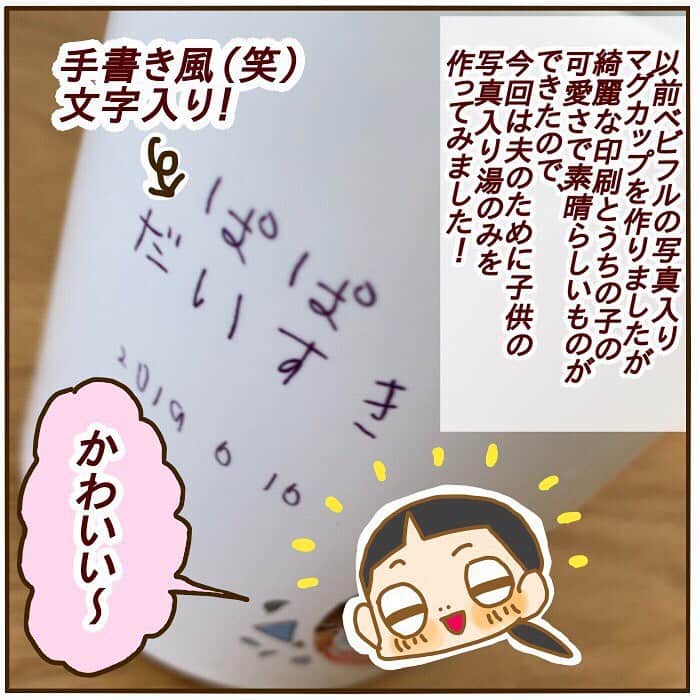 以前ベビフルの写真入り
マグカップを作りましたが
綺麗な印刷とうちの子の
可愛さで素晴らしいものが
できたので、
今回は夫のために子供の
写真入り湯のみを
作ってみました！
手書き風（笑）
文字入り！
ぱぱ
だいすき
2019 6 10
かわいい～